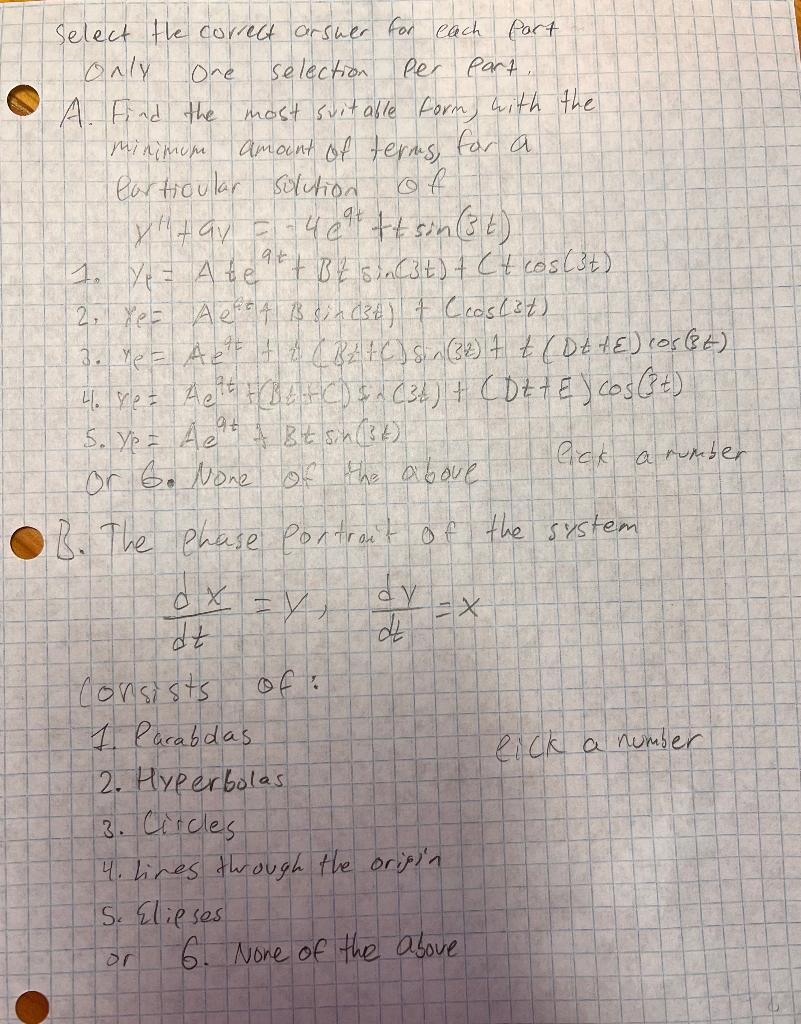 Select the correct answer for each Part
Only one selection Per Part.
A. Find the most suitable form, with the
minimum amount of terms, for a
Particular solution of
y'' + 9y = -4e^{9t} + t sin(3t)
1. Yp = Ate^{9t} + Bt sin(3t) + Ct cos(3t)
2. Yp = Ae^{9t} + B sin(3t) + C cos(3t)
3. Yp = Ae^{9t} + t(Bt+C) sin(3t) + t(Dt+E) cos(3t)
4. Yp = Ae^{9t} + (Bt+C) sin(3t) + (Dt+E) cos(3t)
5. Yp = Ae^{9t} + Bt sin(3t)
or 6. None of the above Pick a number
B. The Phase Portrait of the system
dx/dt = y, dy/dt = x
Consists of:
1. Parabolas
Pick a number
2. Hyperbolas
3. Circles
4. Lines through the origin
5. Elipses
or 6. None of the above